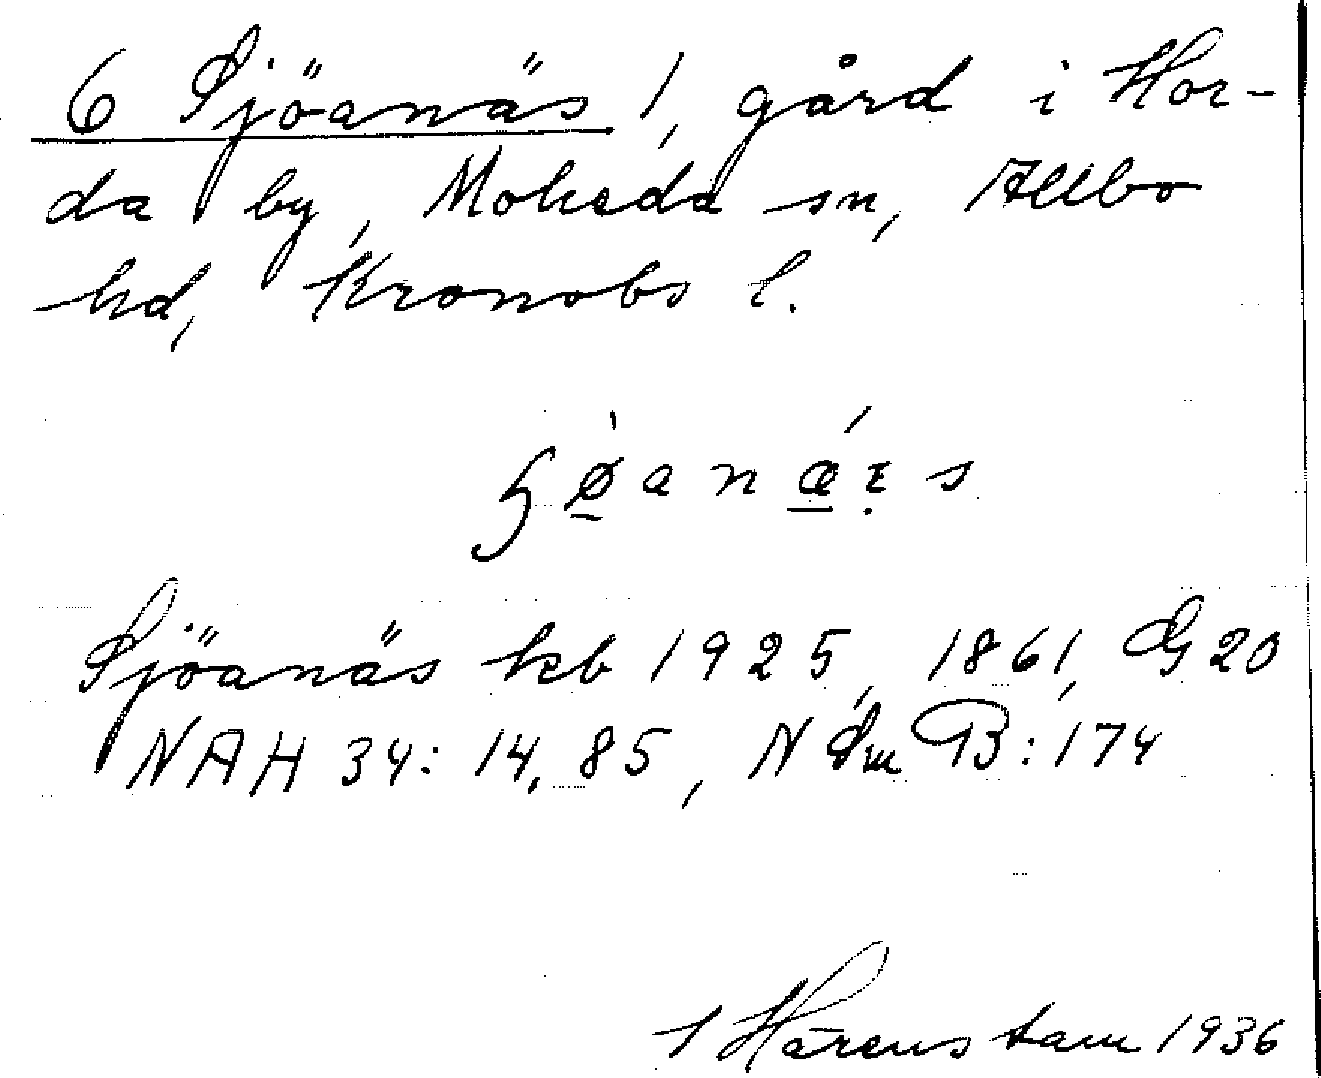 6 Sjöanäs 1, gård i Hor-
da by, Moheda sn, Allbo
hd, Kronobs l.
ɧø̱̀anǽ̱ɪ̣s
Sjöanäs kb 1925, 1861, G 20
NAH 34: 14, 85, N Sm B: 174
Härenstam 1936